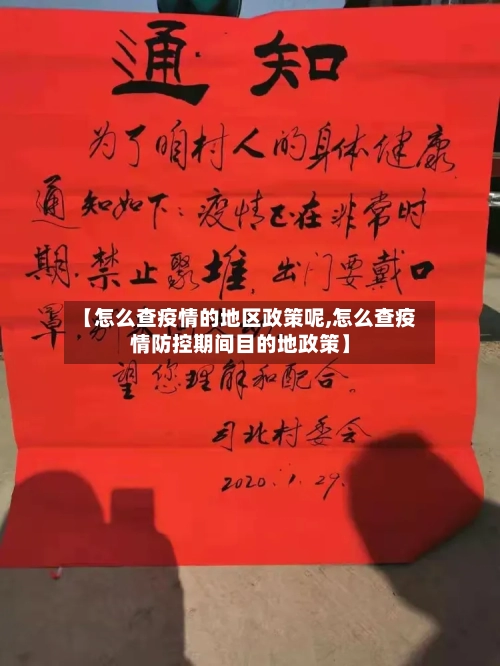 通知
为了咱村人的身体健康
通知如下:疫情已在非常时
期.禁止聚堆,出门要戴口
罩,
【怎么查疫情的地区政策呢,怎么查疫
情防控期间目的地政策】
望您理解和配合。
司北村委会
2020.1.29.